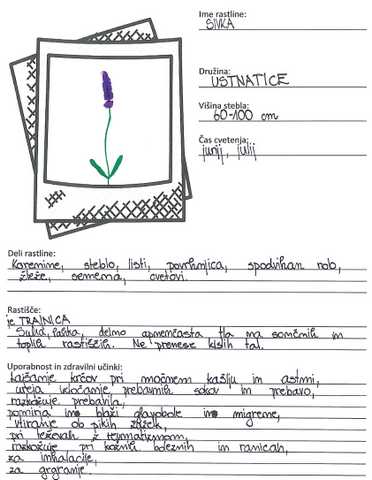 Ime rastline:
SIVKA
Družina:
USTNATICE
Višina stebla:
60-100 cm
Čas cvetenja:
junij, julij
Deli rastline:
korenine, steblo, listi, povrhnjica, spodvihan rob,
žleze, semena, cvetovi.
Rastišče:
je TRAJNICA
Suha, lahka, delno apnenčasta tla na sončnih in
toplih rastiščih. Ne prenese kislih tal.
Uporabnost in zdravilni učinki:
lajšanje krčov pri močnem kašlju in astmi,
ureja izločanje prebavnih sokov in prebavo,
razkužuje prebavila,
pomirja in blaži glavobole in migreme,
vtiranje ob pikih žuželk,
pri težavah z revmatizmom,
razkužuje pri kožnih boleznih in ranicah,
za inhalacije,
za grgranje.